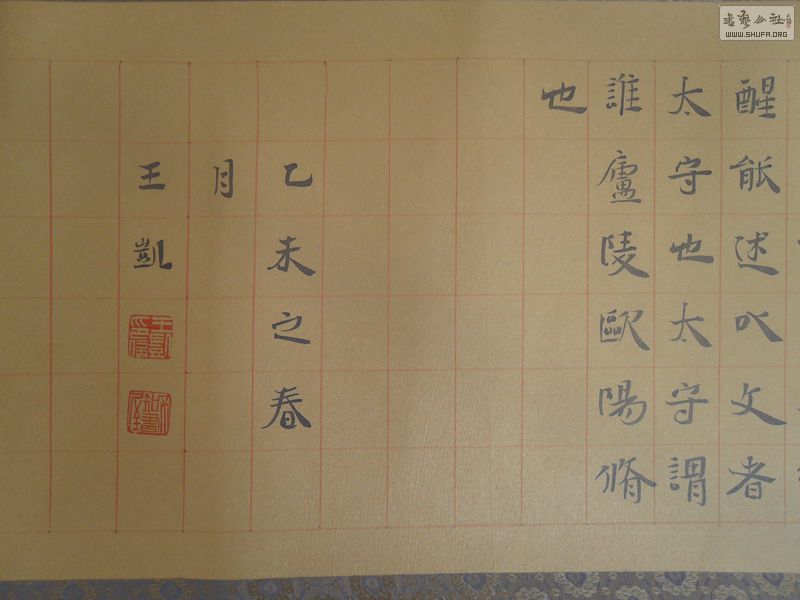 醒能述以文者
太守也太守謂
誰廬陵歐陽脩
也
乙未之春
月
王凱
書藝公社
WWW.SHUFA.ORG